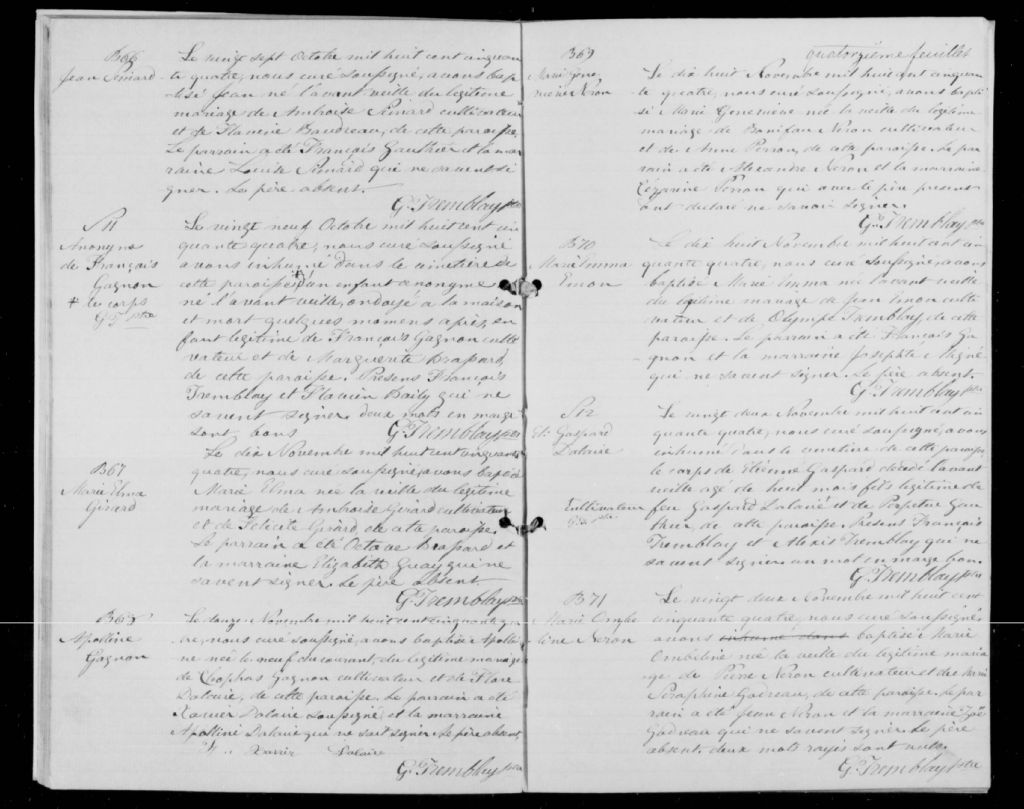 B66
Jean Simard
Le vingt sept Octobre mil huit cent cinquan-
te quatre, nous curé soussigné, avons bap-
tisé Jean né l'avant veille du légitime
mariage de Ambroise Simard cultivateur
et de Flavie Boudreau, de cette paroisse.
Le parrain a été François Gauthier et la mar-
raine Louise Simard qui ne savent si-
gner. Le père absent.
G. Tremblay ptre
S11
Anonyme
de François
Gagnon
+ le corps
G T ptre
Le vingt neuf Octobre mil huit cent cin
quante quatre, nous curé soussigné
avons inhumé dans le cimetière de
cette paroisse + d'un enfant anonyme
né l'avant veille, ondoyé à la maison
et mort quelques momens après, en
fant légitime de François Gagnon culti
vateur et de Marguerite Brassard,
de cette paroisse. Présens François
Tremblay et Flavien Baily qui ne
savent signer. deux mots en marge
sont bons
G. Tremblay ptre
B67
Marie Elma
Girard
Le dix Novembre mil huit cent cinquante
quatre, nous curé soussigné, avons baptisé
Marie Elma née la veille du légitime
mariage de Ambroise Girard cultivateur
et de Félicité Girard, de cette paroisse.
Le parrain a été Octave Brassard et
la marraine Elizabeth Guay qui ne
savent signer. Le père absent.
G. Tremblay ptre
B68
Apolline
Gagnon
Le douze Novembre mil huit cent cinquante qua
tre, nous curé soussigné, avons baptisé Apolli
ne née le neuf du courant, du légitime mariage
de Cléophas Gagnon cultivateur et de Flore
Dalaire, de cette paroisse. Le parrain a été
Xavier Dalaire soussigné, et la marraine
Apolline Dalaire qui ne sait signer. Le père absent.
Xavier Dalaire
G. Tremblay ptre
quatorzième feuillet
B69
Marie Gene
vieve Neron
Le dix huit Novembre mil huit cent cinquan
te quatre, nous curé soussigné, avons bapti
sé Marie Genevieve née la veille du légitime
mariage de Boniface Neron cultivateur
et de Anne Perron, de cette paroisse. Le par
rain a été Alexandre Neron et la marraine
Césarine Perron qui avec le père present
ont déclaré ne savoir signer.
G. Tremblay ptre
B70
Marie Emma
Simon
Le dix huit Novembre mil huit cent cin
quante quatre, nous curé soussigné, avons
baptisé Marie Emma née l'avant veille
du légitime mariage de Jean Simon culti
vateur et de Olympe Tremblay, de cette
paroisse. Le parrain a été François Ga
gnon et la marraine Josephte
qui ne savent signer. Le père absent.
G. Tremblay ptre
S12
Et. Gaspard
Dalaire
Cultivateur
G T ptre
Le vingt deux Novembre mil huit cent cin
quante quatre, nous curé soussigné, avons
inhumé dans le cimetière de cette paroisse,
le corps de Etienne Gaspard décédé l'avant
veille agé de huit mois fils légitime de
feu Gaspard Dalaire et de Perpétue Gau
thier, de cette paroisse. Présens François
Tremblay et Alexis Tremblay qui ne
savent signer. un mot en marge bon.
G. Tremblay ptre
B71
Marie Ombe
line Neron
Le vingt deux Novembre mil huit cent
cinquante quatre, nous curé soussigné,
avons inhumé dans baptisé Marie
Ombeline née la veille du légitime maria
ge de Pierre Neron cultivateur et de Marie
Séraphine Gadreau, de cette paroisse. Le par
rain a été Jean Neron et la marraine Zoë
Gadreau qui ne savent signer. Le père
absent. deux mots rayés sont nuls.
G. Tremblay ptre